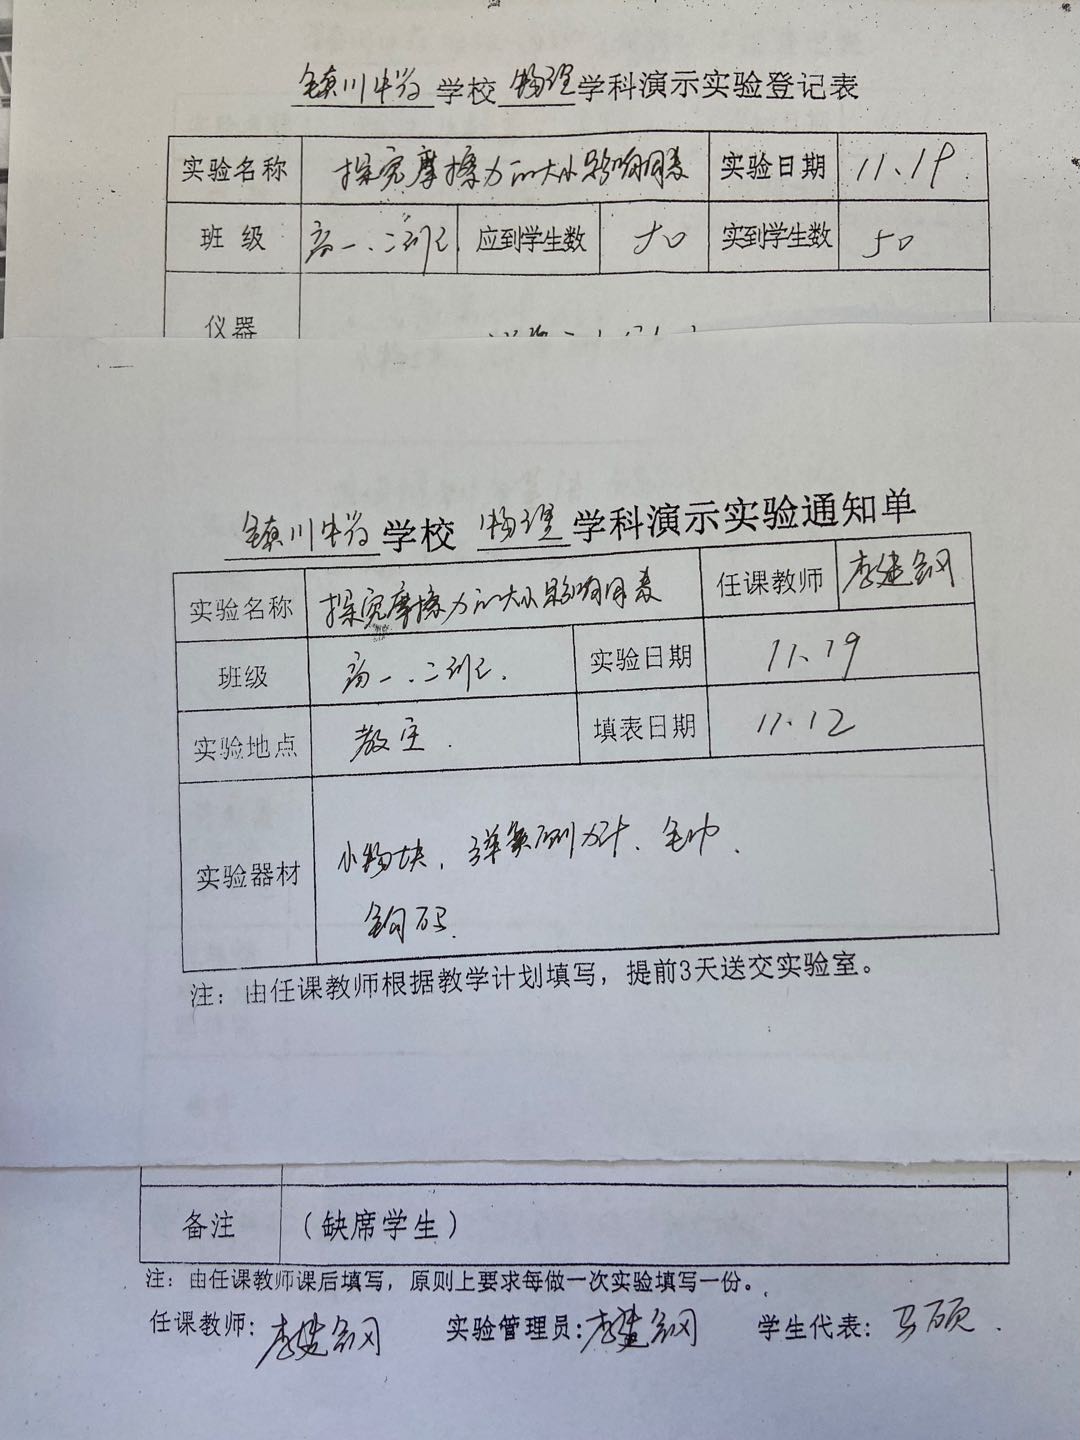 镇川中学学校 物理学科演示实验登记表
实验名称 探究摩擦力的大小影响因素 实验日期 11.19
班 级 高一.二班 应到学生数 50 实到学生数 50
仪器
镇川中学学校 物理学科演示实验通知单
实验名称 探究摩擦力的大小影响因素 任课教师 李建钢
班级 高一.二班. 实验日期 11.19
实验地点 教室. 填表日期 11.12
实验器材 小物块、弹簧测力计、毛巾、
钩码.
注：由任课教师根据教学计划填写，提前3天送交实验室。
备注 （缺席学生）
注：由任课教师课后填写，原则上要求每做一次实验填写一份。
任课教师：李建钢 实验管理员：李建钢 学生代表：马硕.